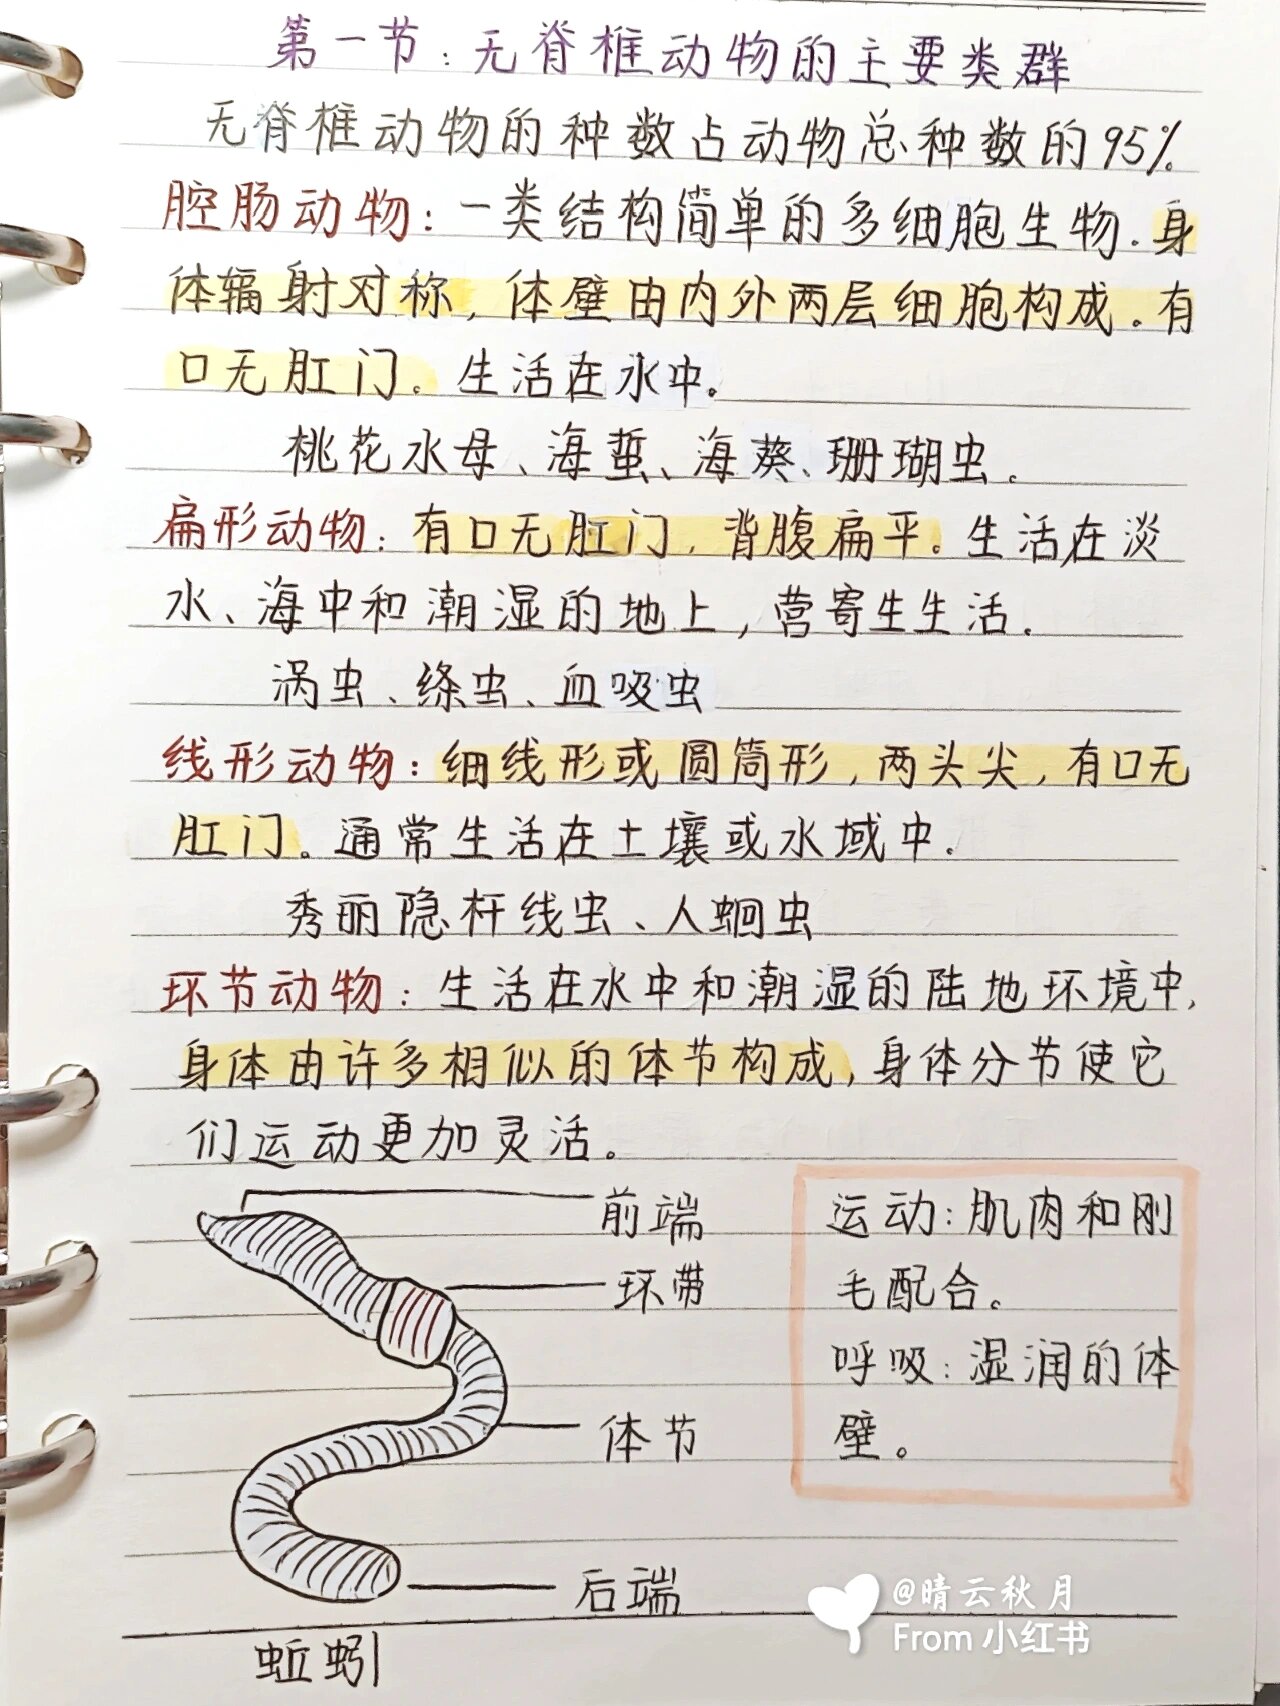 第一节：无脊椎动物的主要类群
无脊椎动物的种数占动物总种数的95%.
腔肠动物：一类结构简单的多细胞生物.身
体辐射对称，体壁由内外两层细胞构成。有
口无肛门。生活在水中。
桃花水母、海蜇、海葵、珊瑚虫.
扁形动物：有口无肛门，背腹扁平。生活在淡
水、海中和潮湿的地上，营寄生生活.
涡虫、绦虫、血吸虫
线形动物：细线形或圆筒形，两头尖，有口无
肛门。通常生活在土壤或水域中.
秀丽隐杆线虫、人蛔虫
环节动物：生活在水中和潮湿的陆地环境中,
身体由许多相似的体节构成，身体分节使它
们运动更加灵活。
前端
环带
体节
后端
蚯蚓
运动：肌肉和刚
毛配合。
呼吸：湿润的体
壁。
@晴云秋月
From 小红书